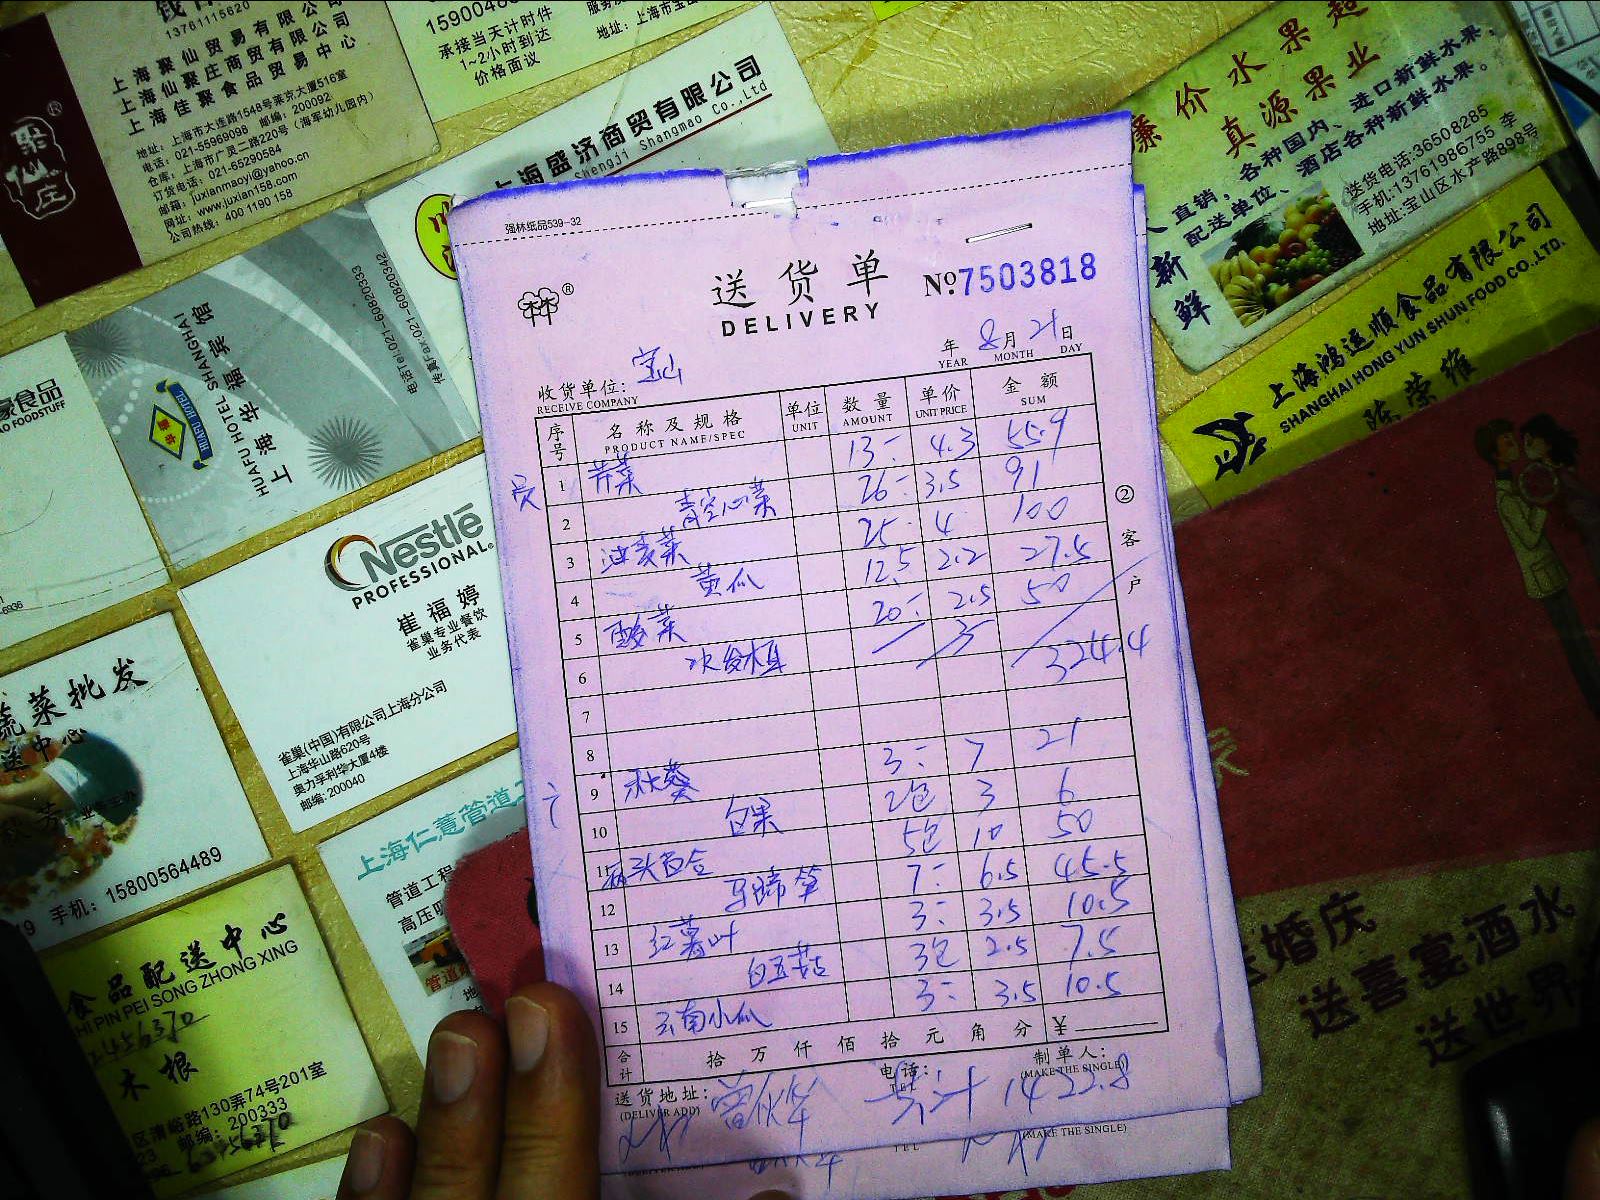 13761115620
上海聚仙贸易有限公司
上海仙聚庄商贸有限公司
上海佳聚食品贸易中心
地址：上海市大连路1548号莱京大厦516室
电话：021-55969098 邮编：200092
仓库：上海市广灵二路220号（海军幼儿园内）
订货电话：021-65290584
邮箱：juxianmaoyi@yahoo.cn
网址：www.juxian158.com
公司热线：400 1190 158
聚仙庄
承接当天计时件
1~2小时到达
价格面议
上海盛济商贸有限公司
Shengji Shangmao Co.,Ltd
廉价水果超
真源果业
直销，各种国内、进口新鲜水果，
配送单位、酒店各种新鲜水果。
送货电话:36508285
手机:13761986755 李
地址:宝山区水产路898号
新鲜
上海鸿运顺食品有限公司
SHANGHAI HONG YUN SHUN FOOD CO.,LTD.
陈荣维
HUAFU HOTEL SHANGHAI
上海华福宾馆
电话Tel:021-60820333
传真Fax:021-60820342
HUAFU HOTEL
Nestlé
PROFESSIONAL
崔福婷
雀巢专业餐饮
业务代表
雀巢(中国)有限公司上海分公司
上海华山路620号
奥力孚利华大厦4楼
邮编: 200040
蔬菜批发
送中心
手机：15800564489
上海仁薏管道工
管道工程
高压
食品配送中心
SHI PIN PEI SONG ZHONG XING
木根
区清峪路130弄74号201室
邮编：200333
婚庆
送喜宴酒水
送世界
强林纸品539-32
送货单 №7503818
DELIVERY
年 8月21日
YEAR MONTH DAY
收货单位：宝山
RECEIVE COMPANY
序号 名称及规格 单位 数量 单价 金额
PRODUCT NAME/SPEC UNIT AMOUNT UNIT PRICE SUM
1 芥菜 13 4.3 55.9
2 青空心菜 26 3.5 91
3 油麦菜 25 4 100
4 黄瓜 12.5 2.2 27.5
5 酸菜 20 2.5 50
6 35
324.4
7
8
9 秋葵 3 7 21
10 白果 2包 3 6
11 百合 5包 10 50
12 马蹄 7 6.5 45.5
13 红薯叶 3 3.5 10.5
14 白玉菇 3包 2.5 7.5
15 云南小瓜 3 3.5 10.5
合计 拾万仟佰拾元角分 ¥
送货地址： 电话： 制单人：
(DELIVER ADD) TEL (MAKE THE SINGLE)
共计 1422.8
(MAKE THE SINGLE)
TEL
② 客户